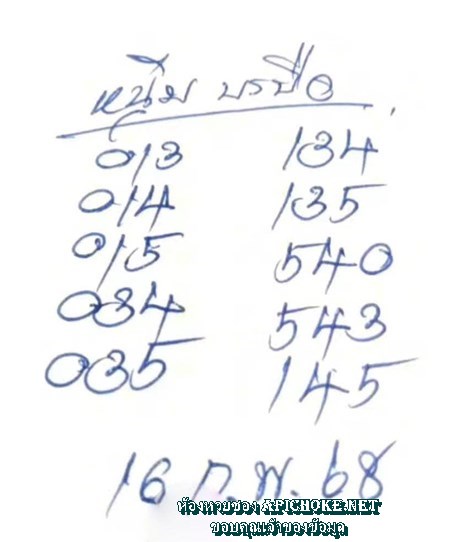 หนุ่ม บรบือ
013 134
014 135
015 540
034 543
035 145
16 ก.พ. 68
ห้องหวยซอง APICHOKE.NET
ขอบคุณเจ้าของข้อมูล